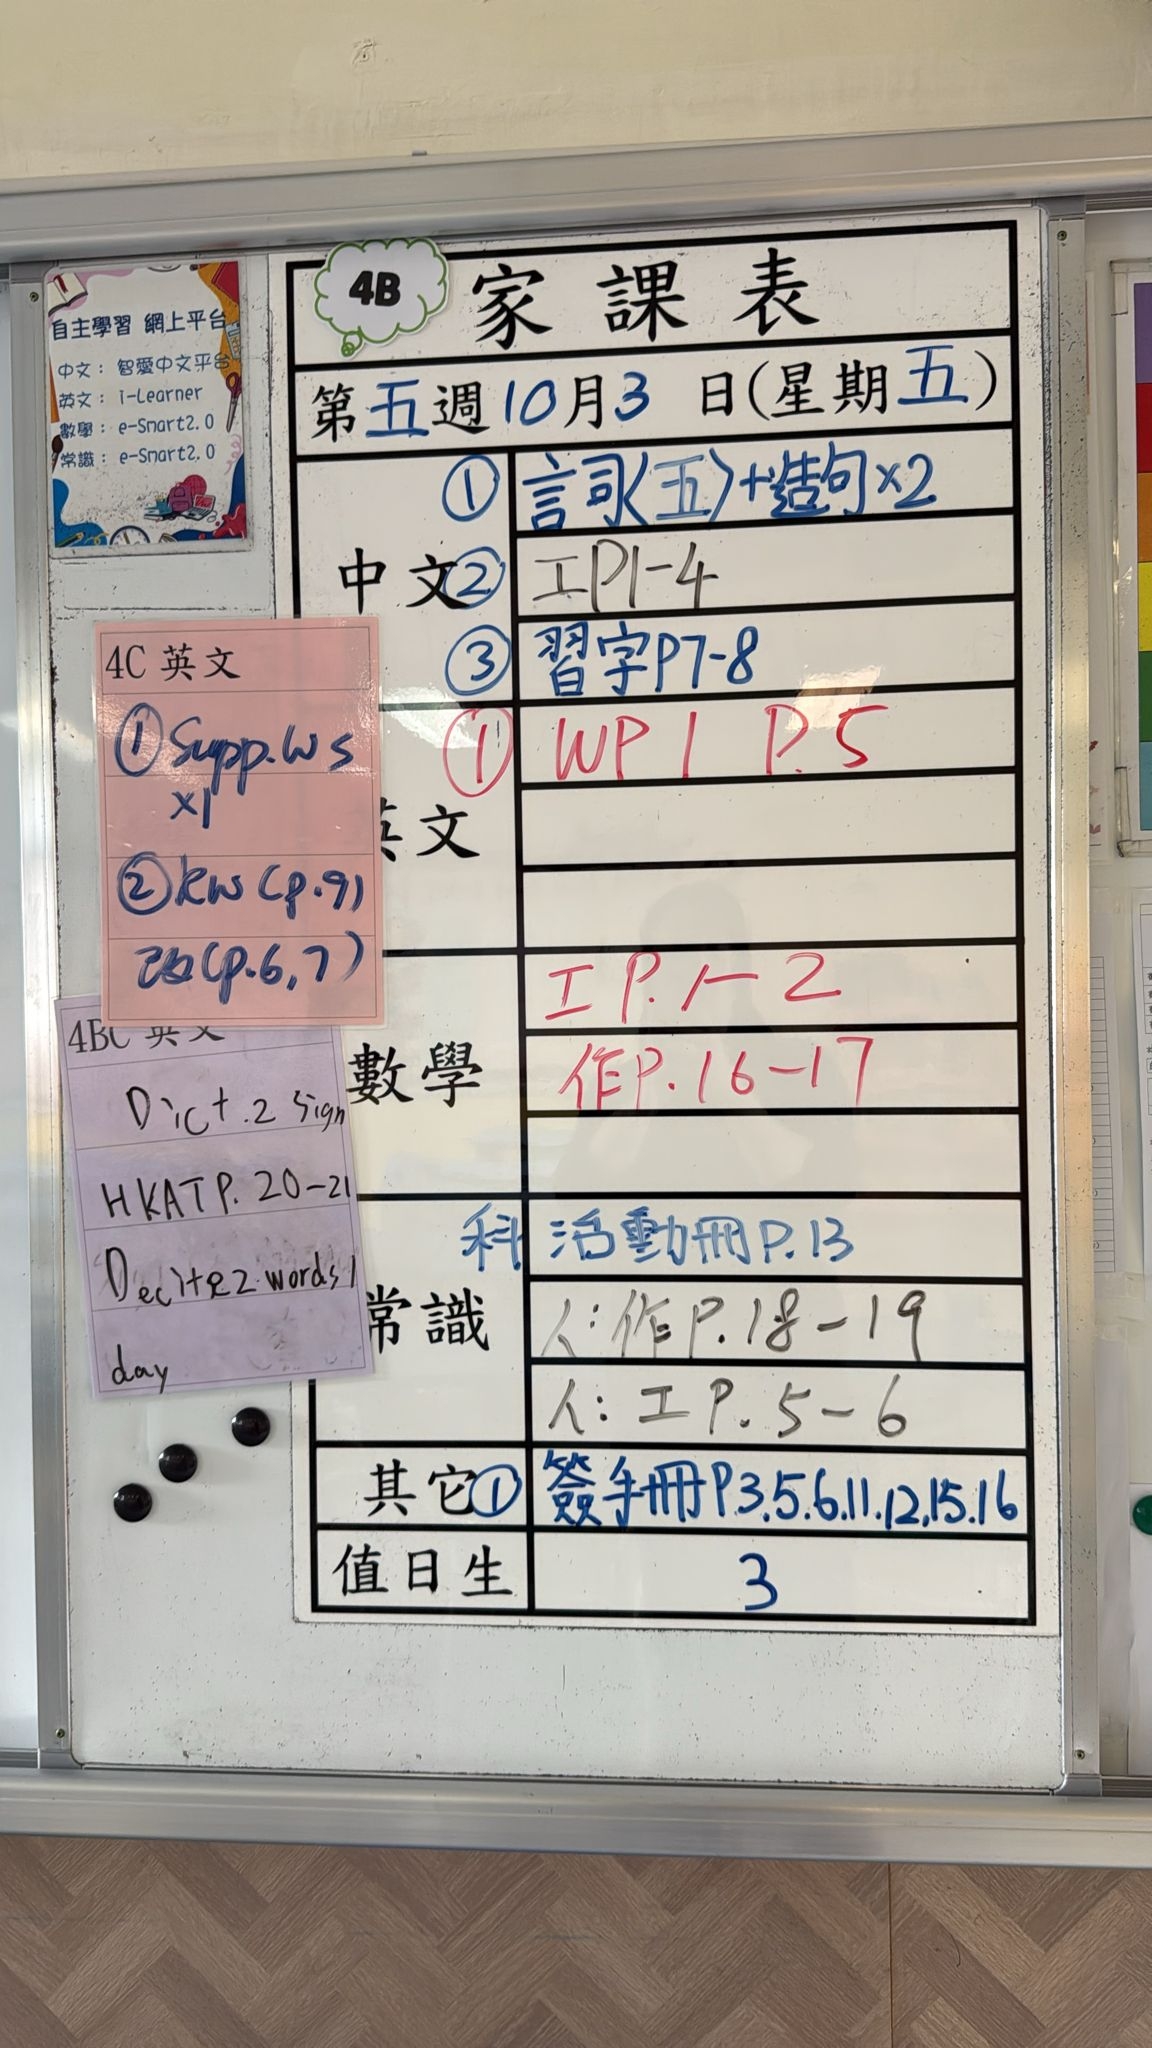 4B 家課表
第五週10月3日(星期五)
自主學習 網上平台
中文：智愛中文平台
英文：i-Learner
數學：e-Smart2.0
常識：e-Smart2.0
中文
① 詞(五)+造句×2
② 工P1-4
③ 習字P7-8
英文
① WP 1 P.5
數學
工 P.1-2
作P.16-17
常識
科 活動冊P.13
人:作P.18-19
人:工P.5-6
其它① 簽手冊P3.5.6.11.12.15.16
值日生 3
4C 英文
① Supp.ws
×1
② RW (p.9)
改(p.6,7)
4BC 英文
Dict.2 Sign
HKAT P.20-21
2 words 1
day